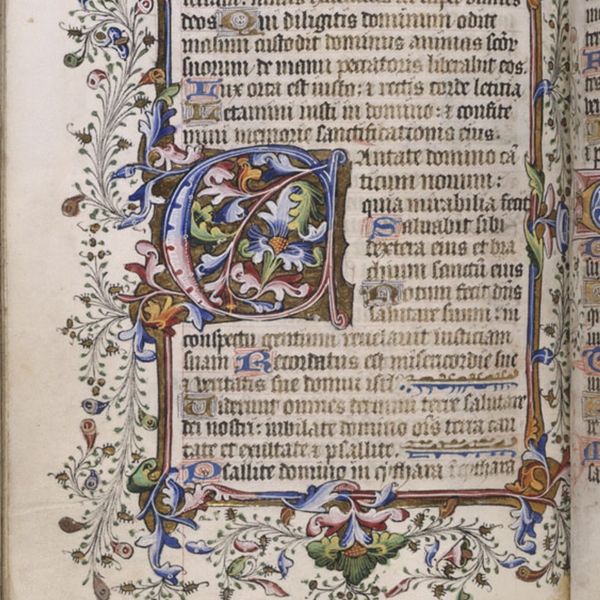 deos Qui diligitis dominum odite
malum custodit dominus animas scōr
suorum de manu peccatoris liberabit eos.
Lux orta est iusto: et rectis corde leticia
Letamini iusti in domino: et confite
mini memorie sanctificationis eius.
Cantate domino cā
ticum novum:
quia mirabilia fecit
Salvabit sibi
dextera eius et bra
chium sanctū eius
Notum fecit dn̄s
salutare suum: in
conspectu gentium revelavit iusticiam
suam Recordatus est misericordie sue
et veritatis sue domui isrl
Viderunt omnes termini terre salutare
dei nostri: iubilate domino oīs terra can
tate et exultate et psallite.
Psallite domino in cythara in cythara